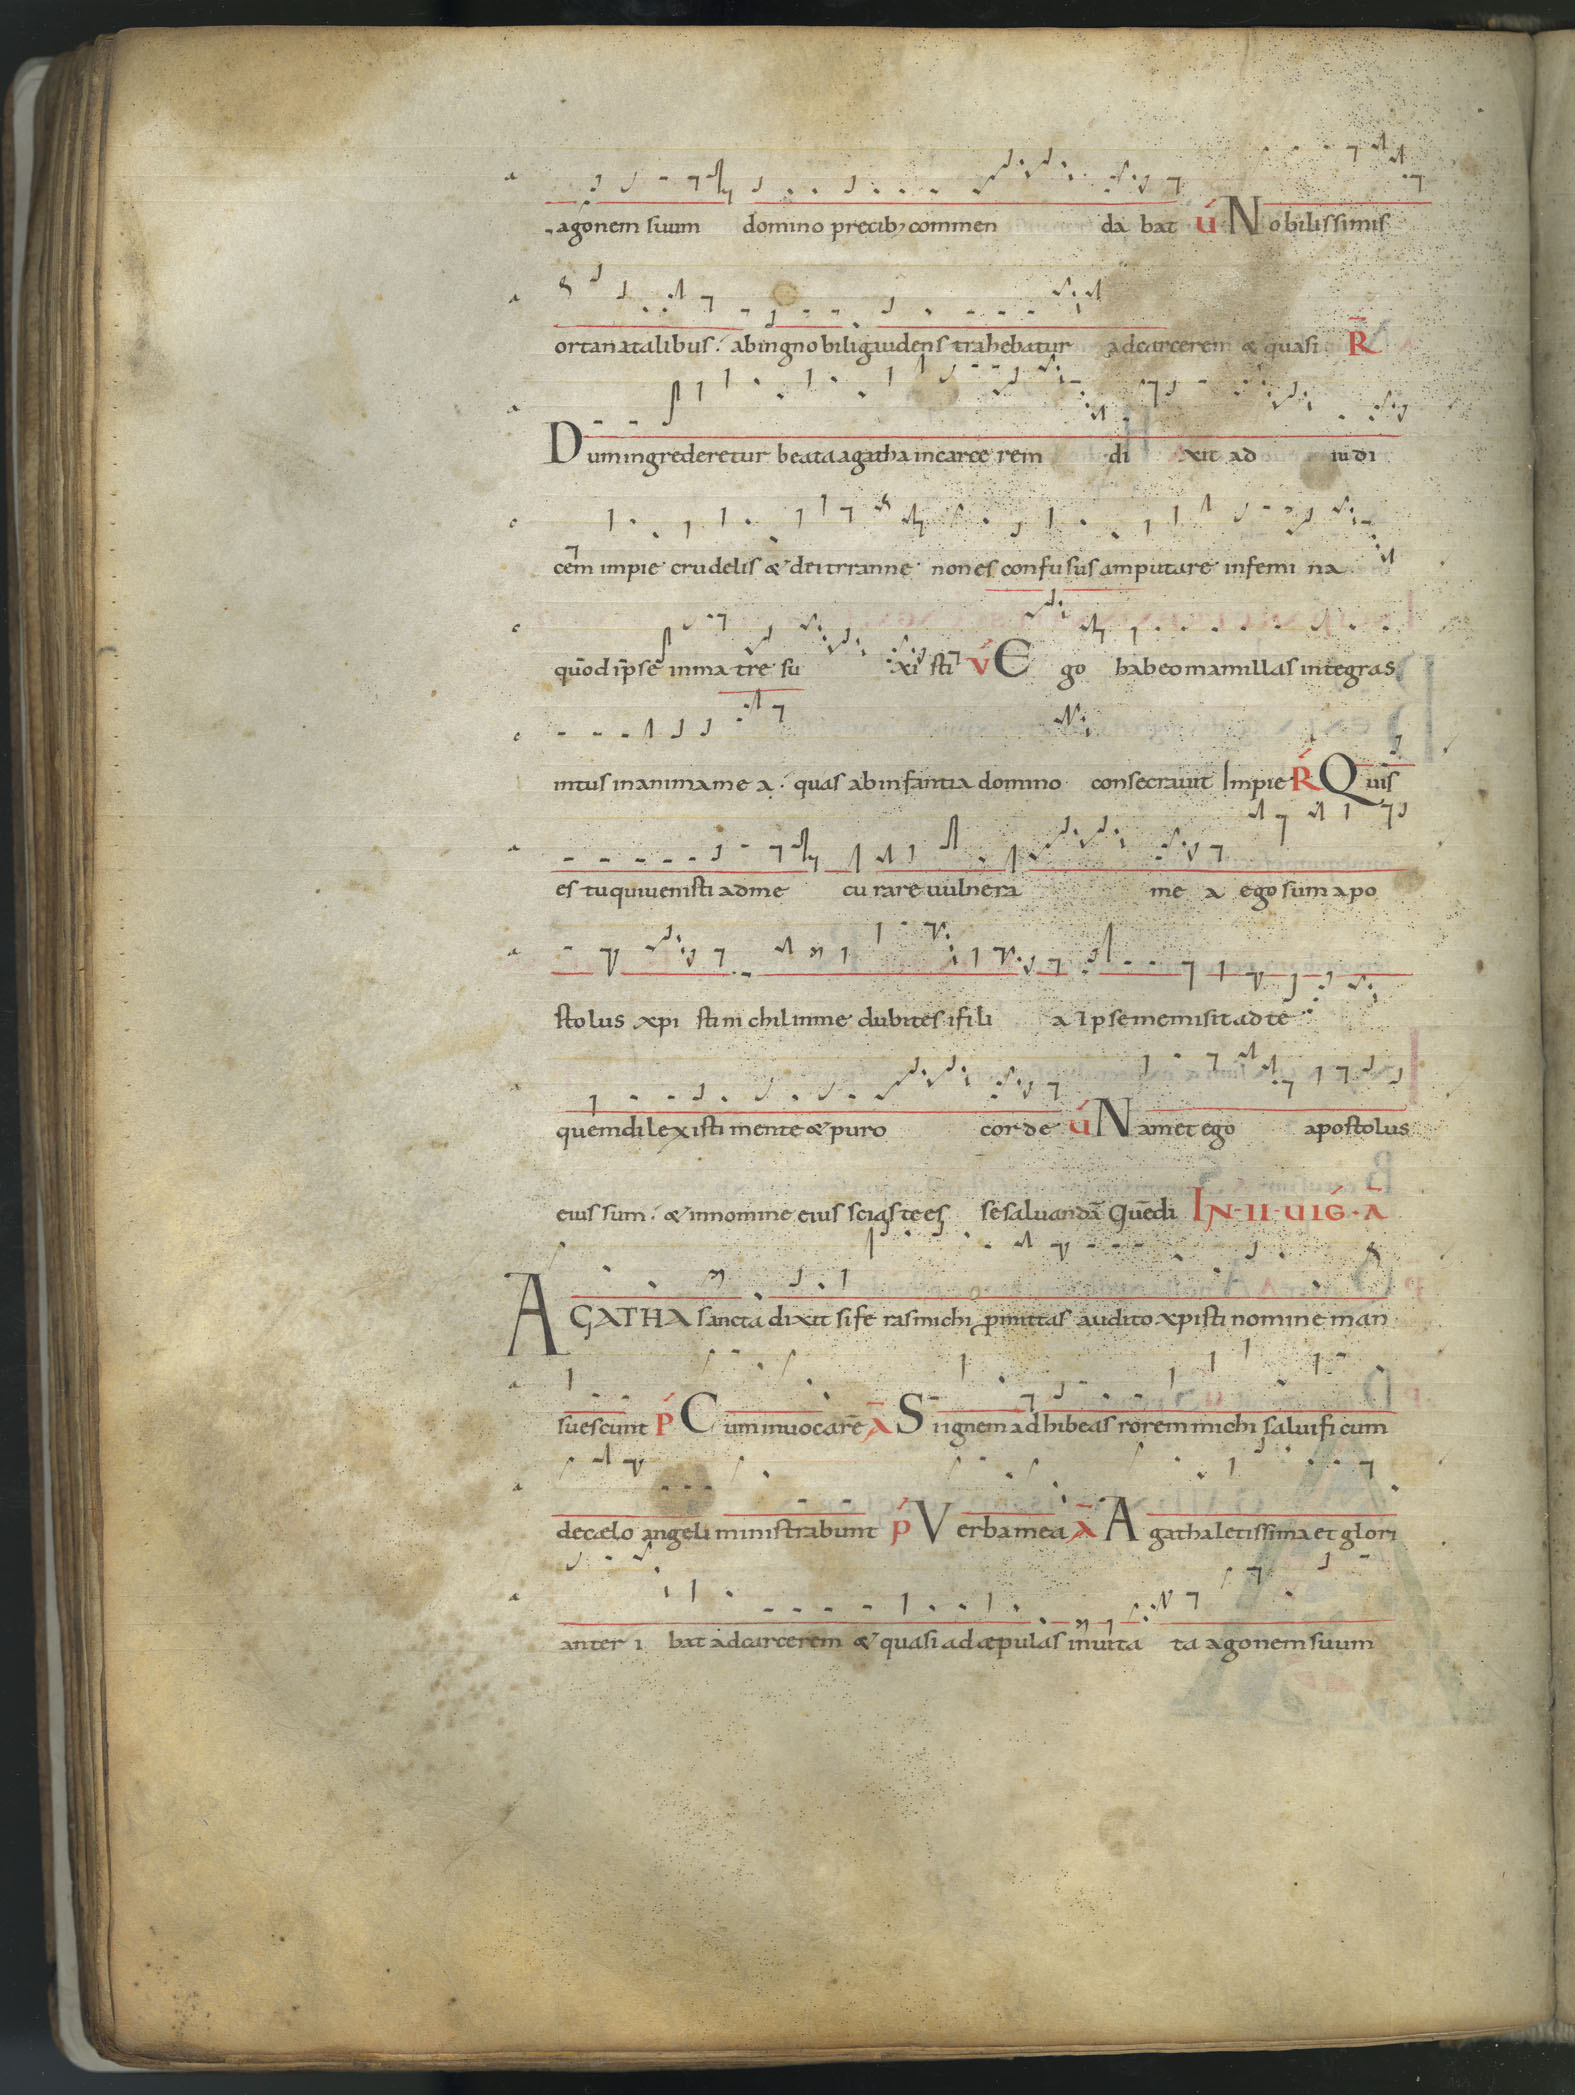 agonem suum domino precib; commen da bat ú Nobilissimis
orta natalibus. abingnobiligaudens trahebatur adcarcerem & quasi R
Dumingrederetur beataagatha incarce rem di xit ad iudi
cem impie crudelis & deitrranne nones confusus amputare infemi na
quod ipse inma tre su xi sti V Ego habeomamillas integras
intus inanimame a. quas abinfantia domino consecravit Impie R Quis
es tuquivenisti adme cu rare vulnera me a ego sum apo
stolus xpi sti ni chil inme dubites ifili a Ipsememisit ad te
quemdilexisti mente & puro corde ú Namet ego apostolus
eius sum. & innomine eius scias te es se salvandā Quēdi IN II UIG A
AGATHA sancta dixit si fe rasmichi promittas audito xpisti nomine man
suescunt P Cuminvocarē A Siignem adhibeas rorem michi salvificum
decælo angeli ministrabunt P Verbamea A Agathaletissima et glori
anter i bat adcarcerem & quasi ad æpulas invita ta agonem suum
a
a
a
c
c
c
a
a
a
a
a
a